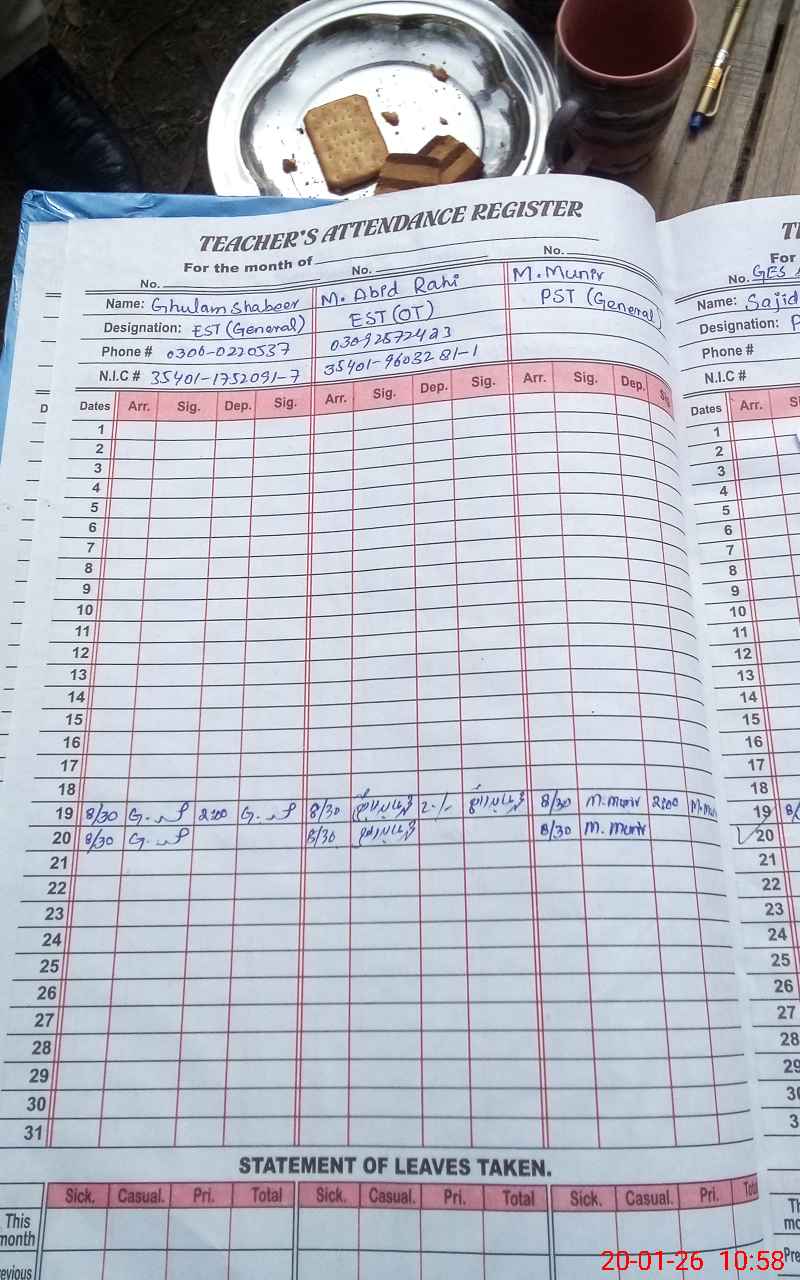 TEACHER'S ATTENDANCE REGISTER
For the month of
No. No. No.
Name: Ghulam Shabeer M. Abid Rahi M. Munir
Designation: EST (General) EST (OT) PST (General)
Phone # 0306-0220537 03092572423
N.I.C # 35401-1752091-7 35401-9603281-1
Dates Arr. Sig. Dep. Sig. Arr. Sig. Dep. Sig. Arr. Sig. Dep. Sig
1
2
3
4
5
6
7
8
9
10
11
12
13
14
15
16
17
18
19 8/30 2:00 8/30 2-/- 8/30 M.Munir 2:00 M.Mu
20 8/30 8/30 8/30 M. Munir
21
22
23
24
25
26
27
28
29
30
31
STATEMENT OF LEAVES TAKEN.
Sick. Casual. Pri. Total Sick. Casual. Pri. Total Sick. Casual. Pri. Total
This month
evious
For
No. GES
Name: Sajid
Designation: P
Phone #
N.I.C #
Dates Arr. S
1
2
3
4
5
6
7
8
9
10
11
12
13
14
15
16
17
18
19 8/
20
21
22
23
24
25
26
27
28
29
30
3
Th
mo
Pre
20-01-26 10:58